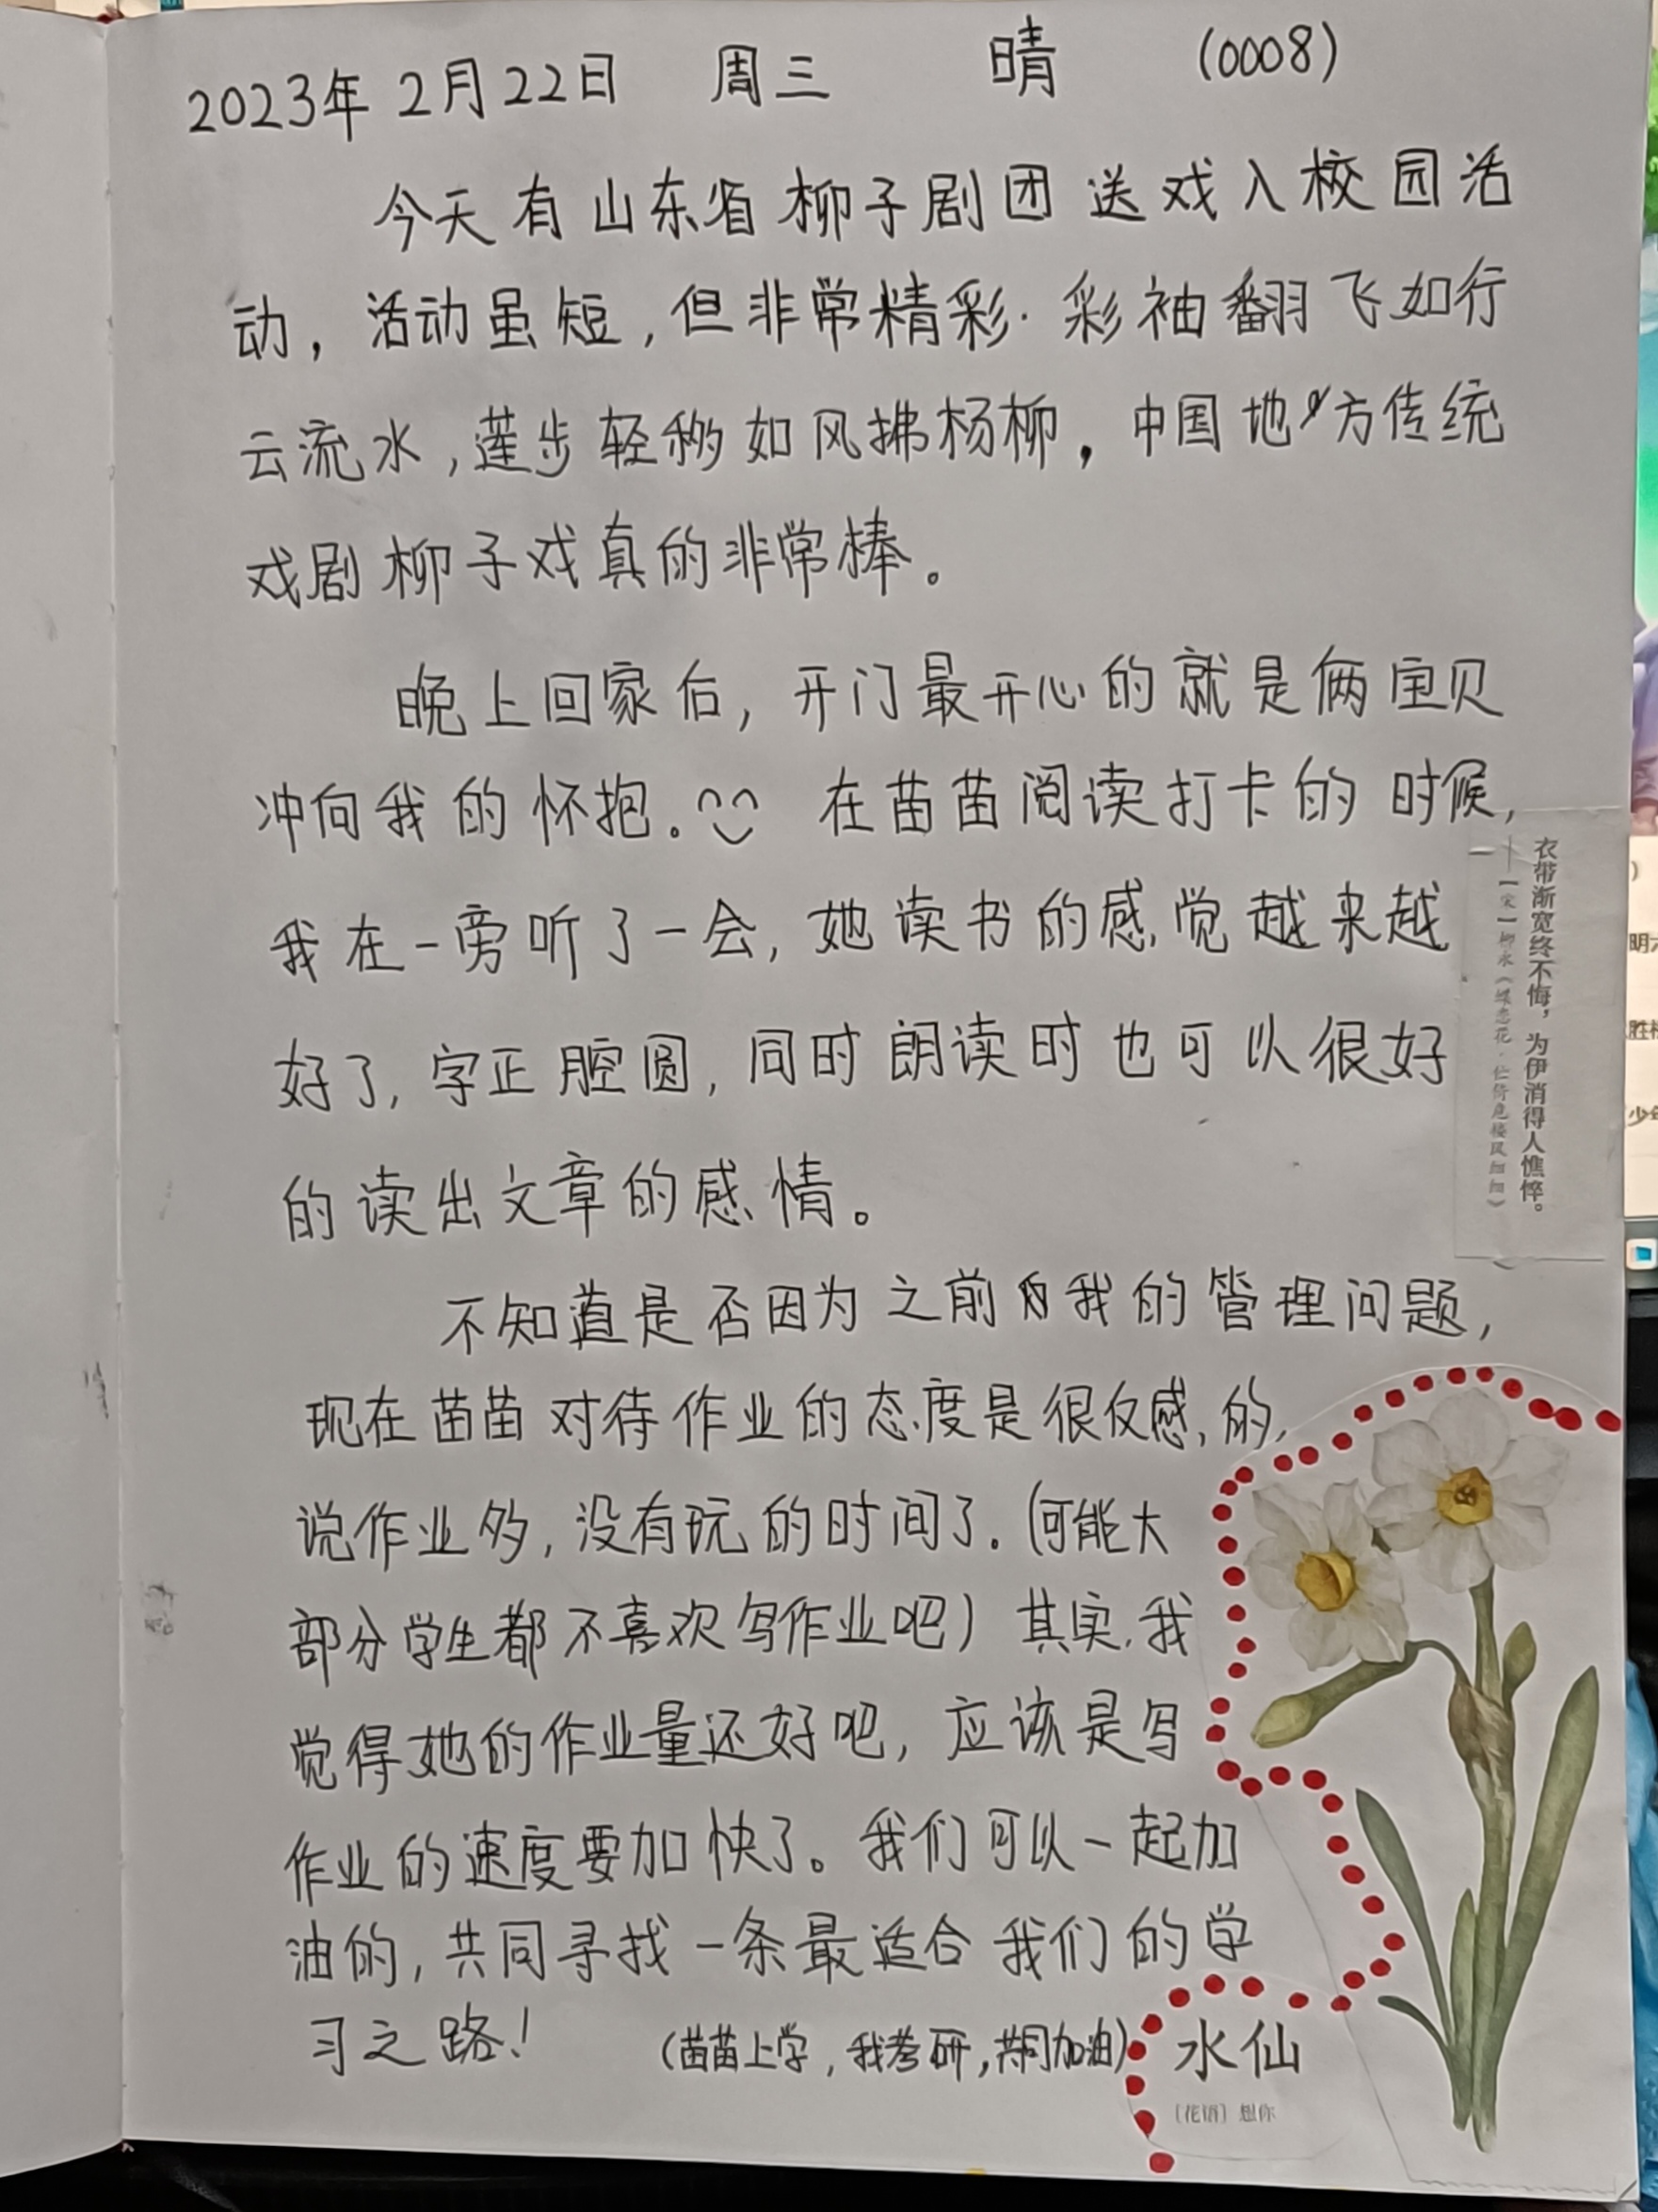 2023年2月22日 周三 晴 (0008)
今天有山东省柳子剧团送戏入校园活
动，活动虽短，但非常精彩.彩袖翻飞如行
云流水，莲步轻移如风拂杨柳，中国地方传统
戏剧柳子戏真的非常棒。
晚上回家后，开门最开心的就是俩宝贝
冲向我的怀抱。在苗苗阅读打卡的时候，
我在一旁听了一会，她读书的感觉越来越
好了，字正腔圆，同时朗读时也可以很好
的读出文章的感情。
不知道是否因为之前我的管理问题，
现在苗苗对待作业的态度是很反感的，
说作业多，没有玩的时间了.(可能大
部分学生都不喜欢写作业吧)其实，我
觉得她的作业量还好吧，应该是写
作业的速度要加快了。我们可以一起加
油的，共同寻找一条最适合我们的学
习之路！ (苗苗上学，我考研，共同加油)
衣带渐宽终不悔，为伊消得人憔悴。
——【宋】柳永《蝶恋花·伫倚危楼风细细》
水仙
[花语] 想你